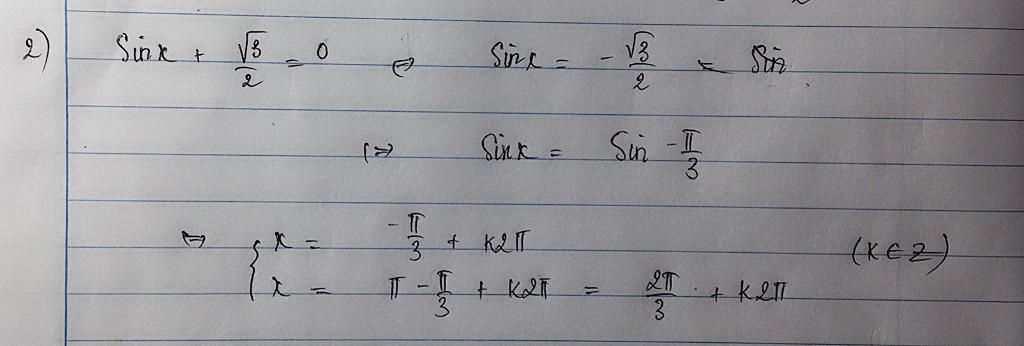 2) Sin x + √3/2 = 0 ⇔ Sin x = - √3/2 = Sin
⇔ Sin x = Sin -π/3
⇔ { x = -π/3 + k2π (k ∈ Z)
x = π - π/3 + k2π = 2π/3 + k2π